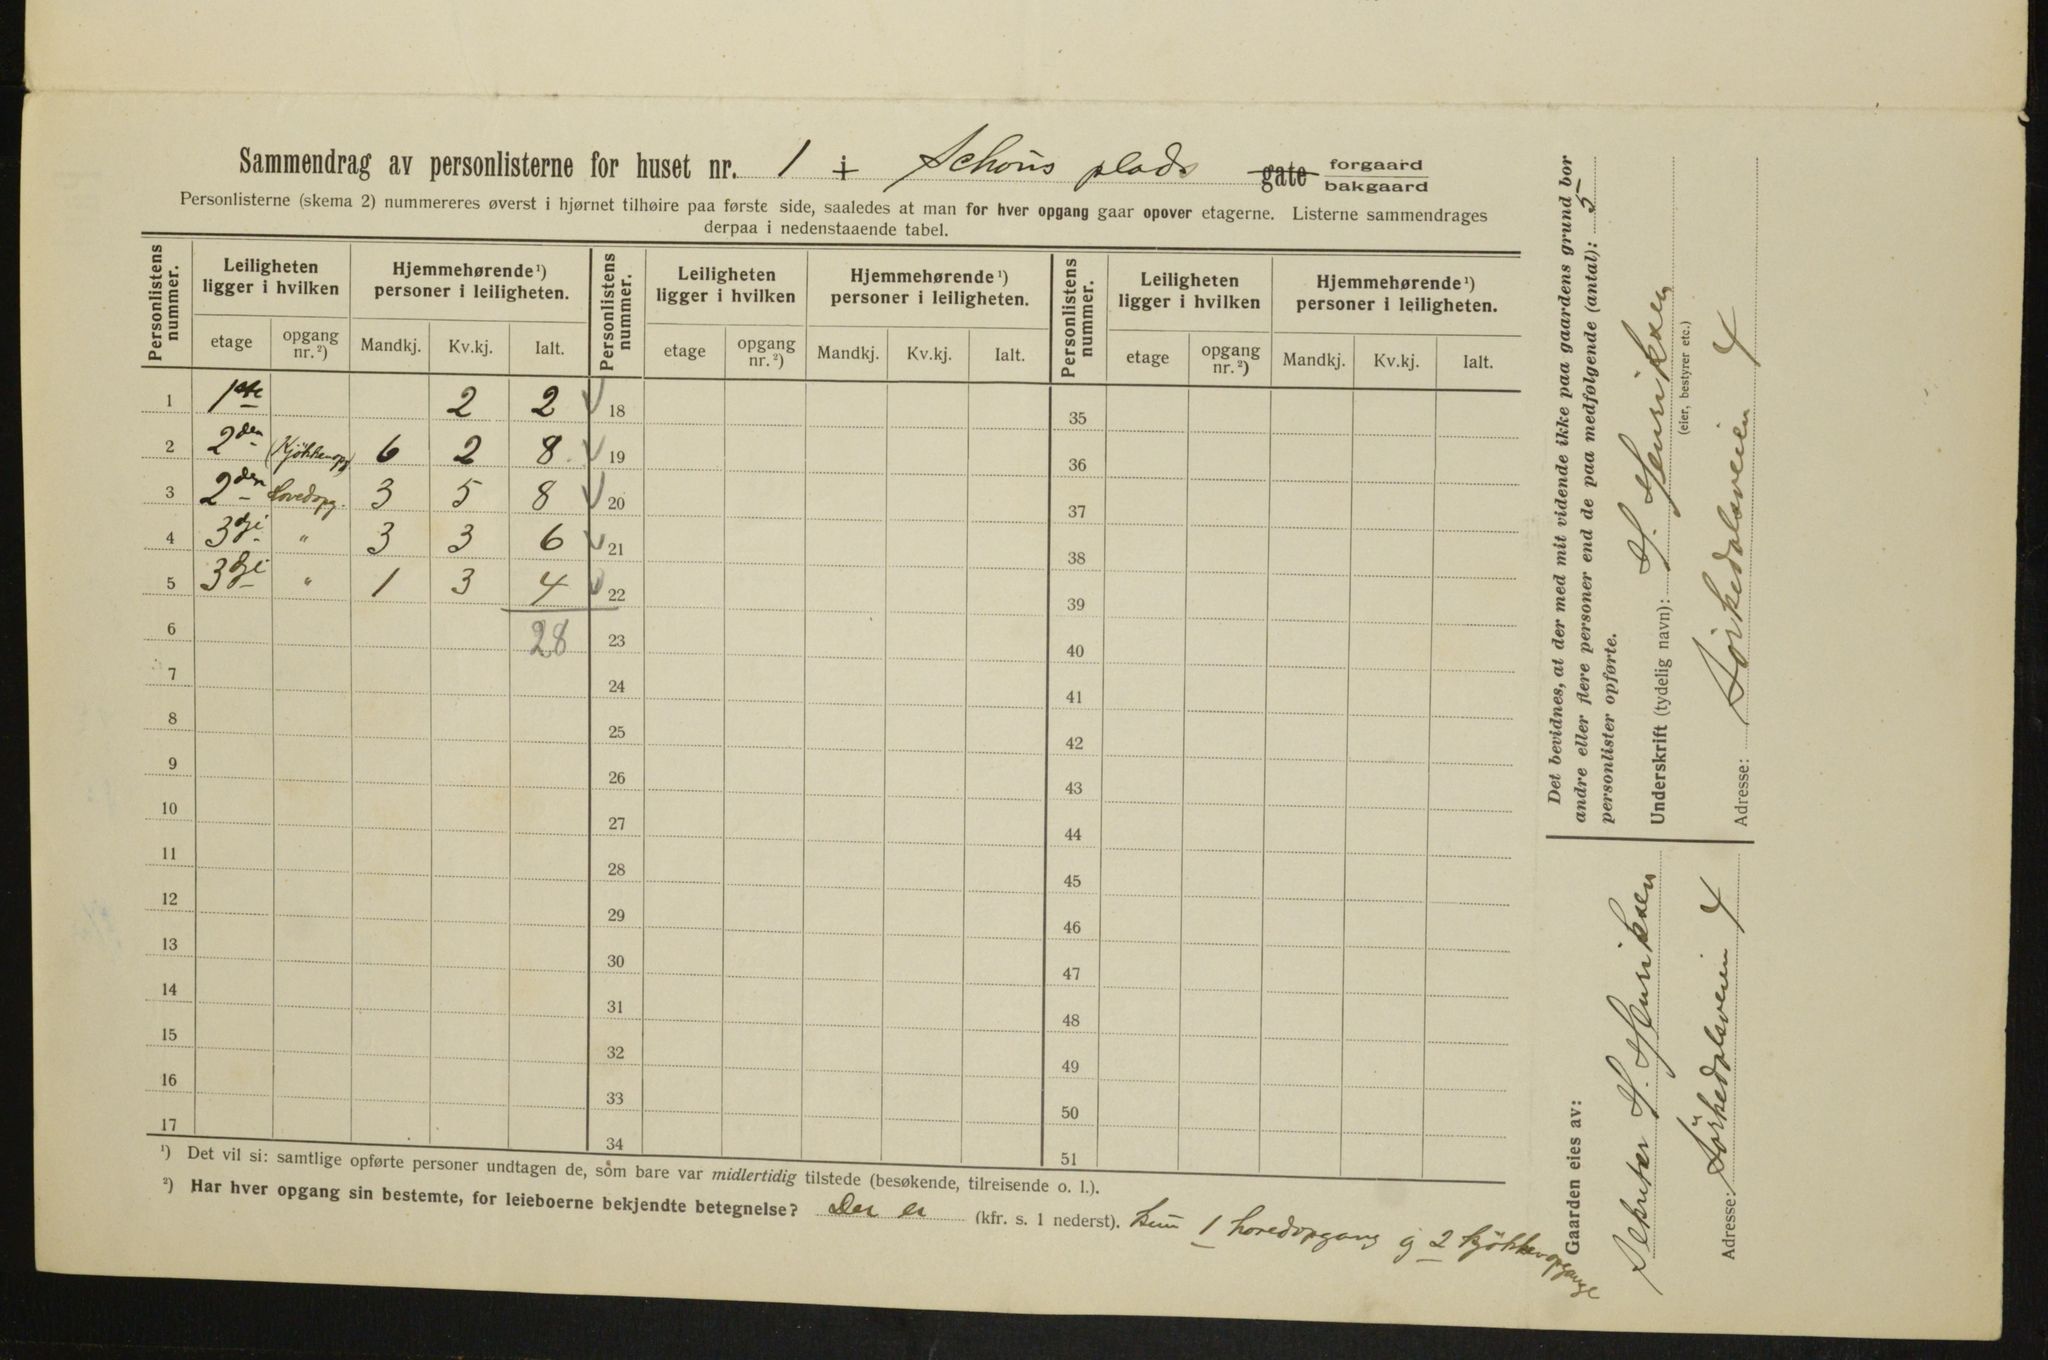 Sammendrag av personlisterne for huset nr. 1 i Schous plads gate forgaard bakgaard
Personlisterne (skema 2) nummereres øverst i hjørnet tilhøire paa første side, saaledes at man for hver opgang gaar opover etagerne. Listerne sammendrages
derpaa i nedenstaaende tabel.
Personlistens nummer. Leiligheten ligger i hvilken Hjemmehørende ¹) personer i leiligheten. Personlistens nummer. Leiligheten ligger i hvilken Hjemmehørende ¹) personer i leiligheten. Personlistens nummer. Leiligheten ligger i hvilken Hjemmehørende ¹) personer i leiligheten.
etage opgang nr. ²) Mandkj. Kv.kj. Ialt. etage opgang nr. ²) Mandkj. Kv.kj. Ialt. etage opgang nr. ²) Mandkj. Kv.kj. Ialt.
1 1ste 2 2 18 35
2 2den (Kjökkenopg) 6 2 8 19 36
3 2den Hovedopg. 3 5 8 20 37
4 3dje " 3 3 6 21 38
5 3dje " 1 3 4 22 39
6 28 23 40
7 24 41
8 25 42
9 26 43
10 27 44
11 28 45
12 29 46
13 30 47
14 31 48
15 32 49
16 33 50
17 34 51
¹) Det vil si: samtlige opførte personer undtagen de, som bare var midlertidig tilstede (besøkende, tilreisende o. l.).
²) Har hver opgang sin bestemte, for leieboerne bekjendte betegnelse? Der er (kfr. s. 1 nederst). kun 1 hovedopgang og 2 kjökkenopgange
Det bevidnes, at der med mit vidende ikke paa gaardens grund bor
andre eller flere personer end de paa medfølgende (antal): 5
personlister opførte.
Underskrift (tydelig navn): H. Henriksen
(eier, bestyrer etc.)
Adresse: Sörkedalsveien 4
Gaarden eies av:
Sekretær H. Henriksen
Adresse: Sörkedalsveien 4